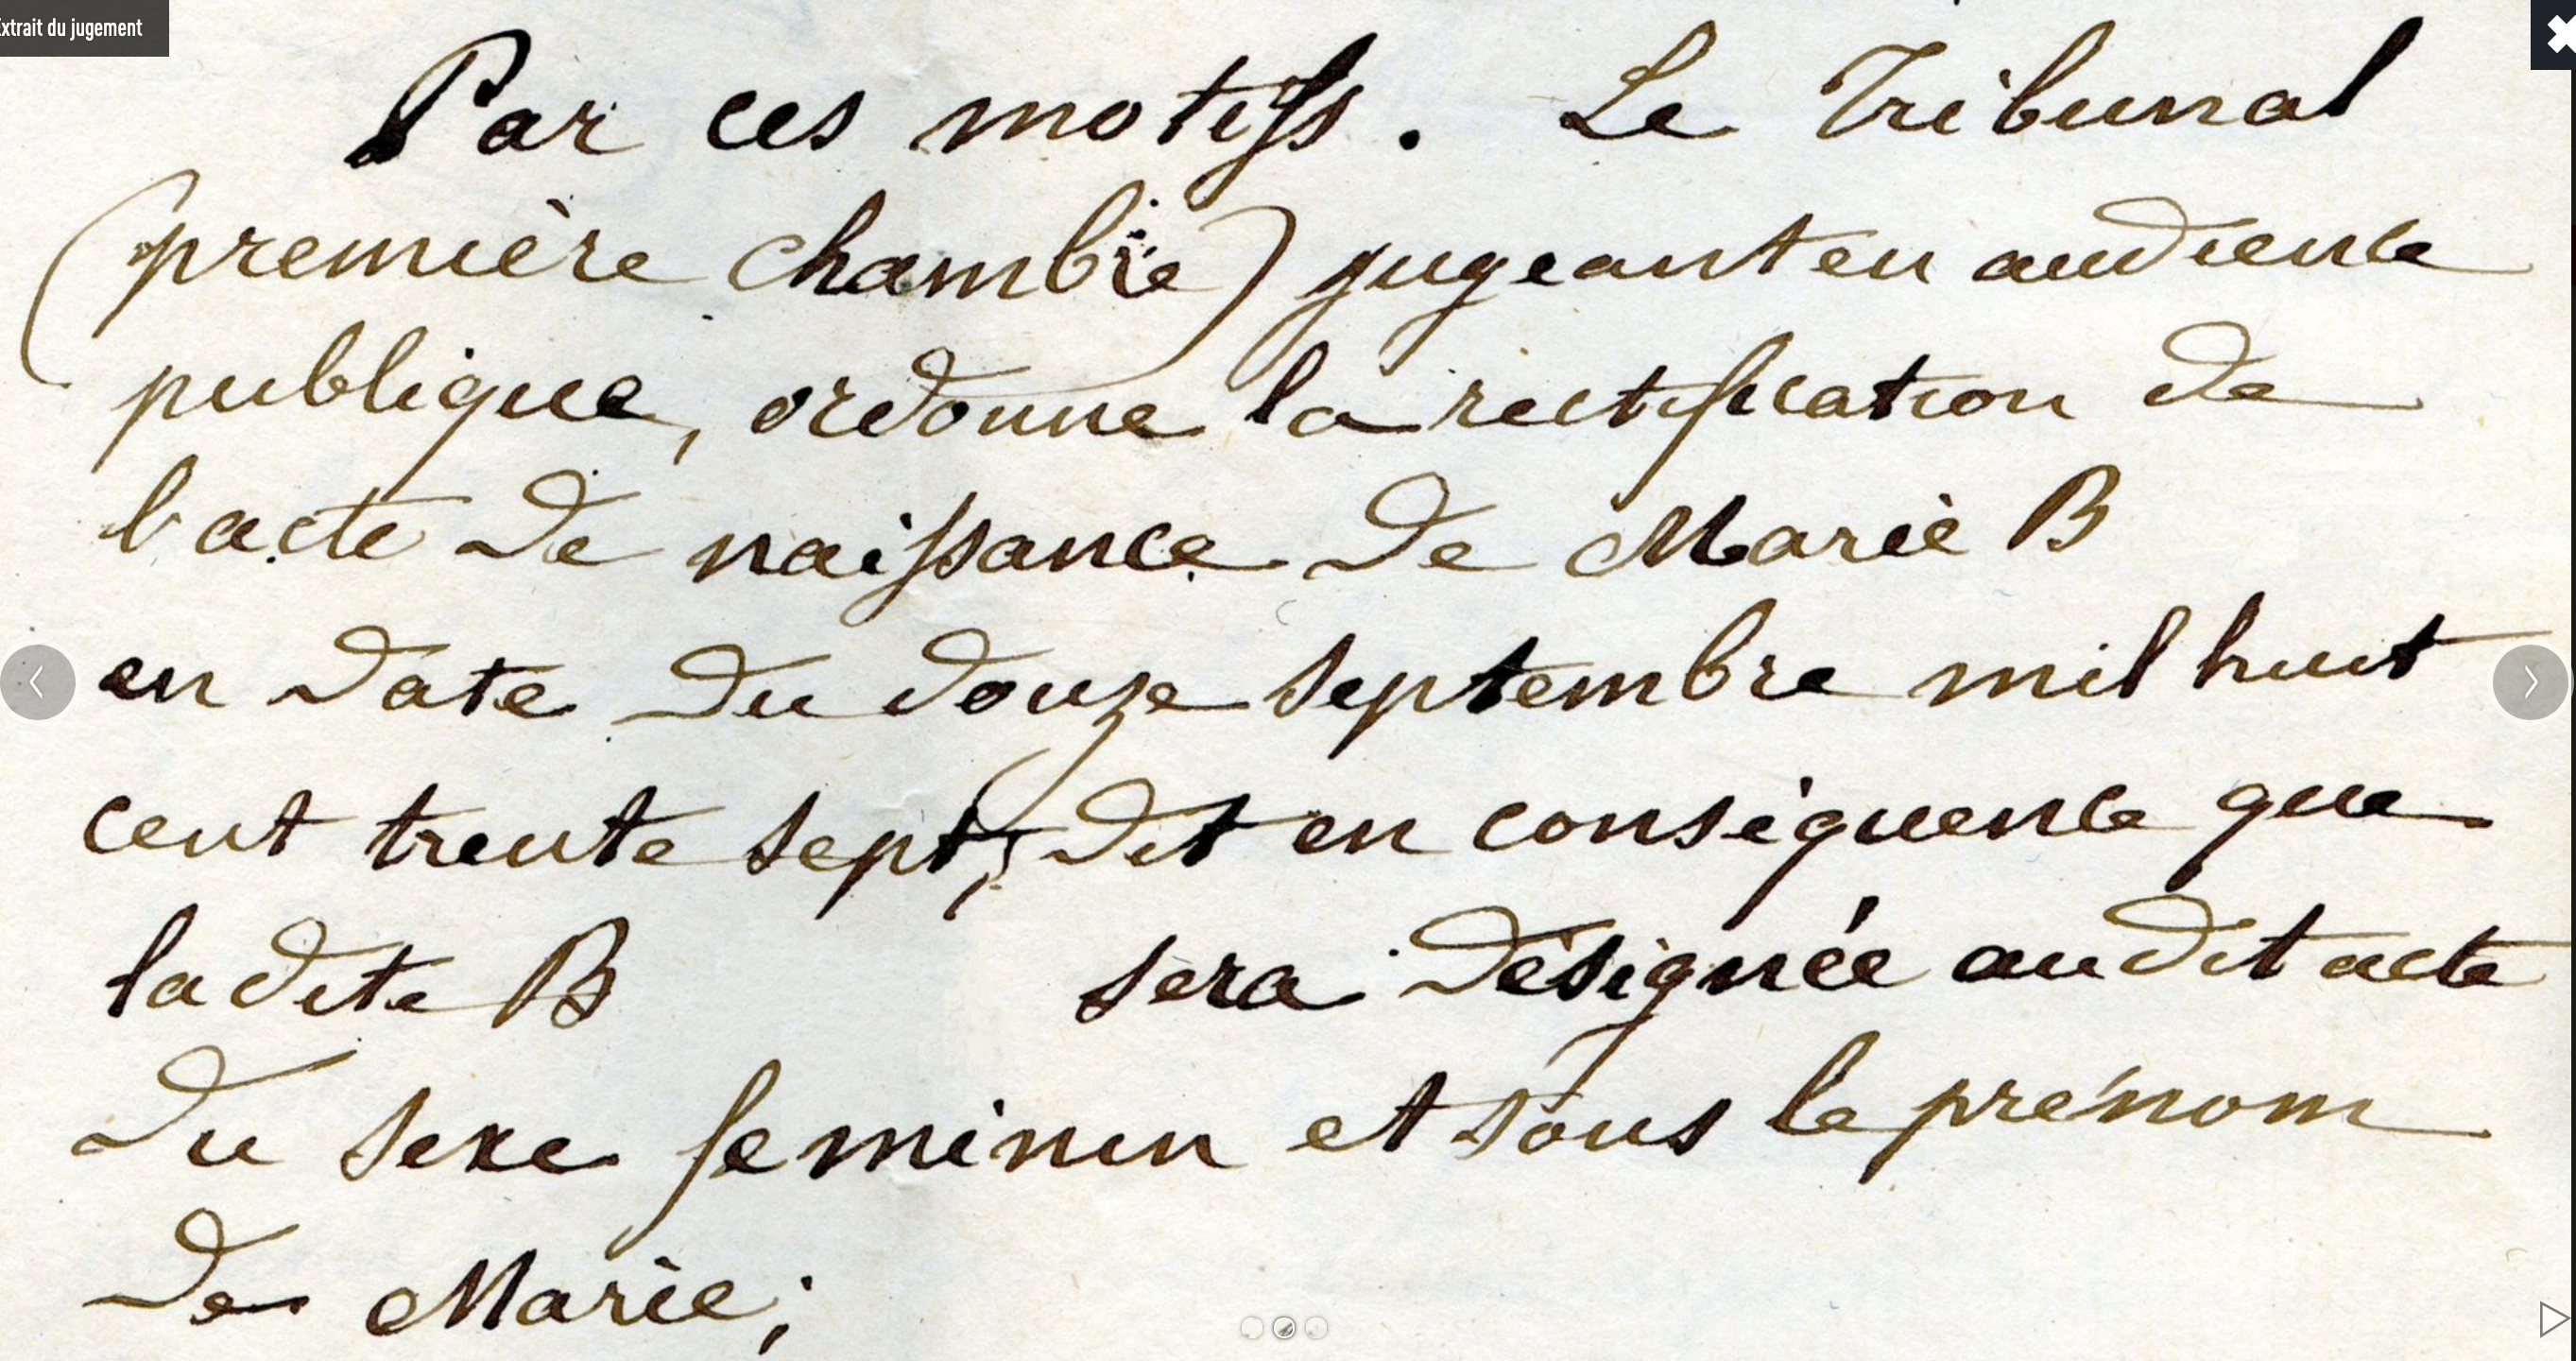 Extrait du jugement
Par ces motifs. Le Tribunal
(première chambre) jugeant en audience
publique, ordonne la rectification de
l'acte de naissance de Marie B
en date du douze septembre mil huit
cent trente sept; dit en conséquence que
ladite B sera désignée audit acte
du sexe feminin et sous le prénom
de Marie;